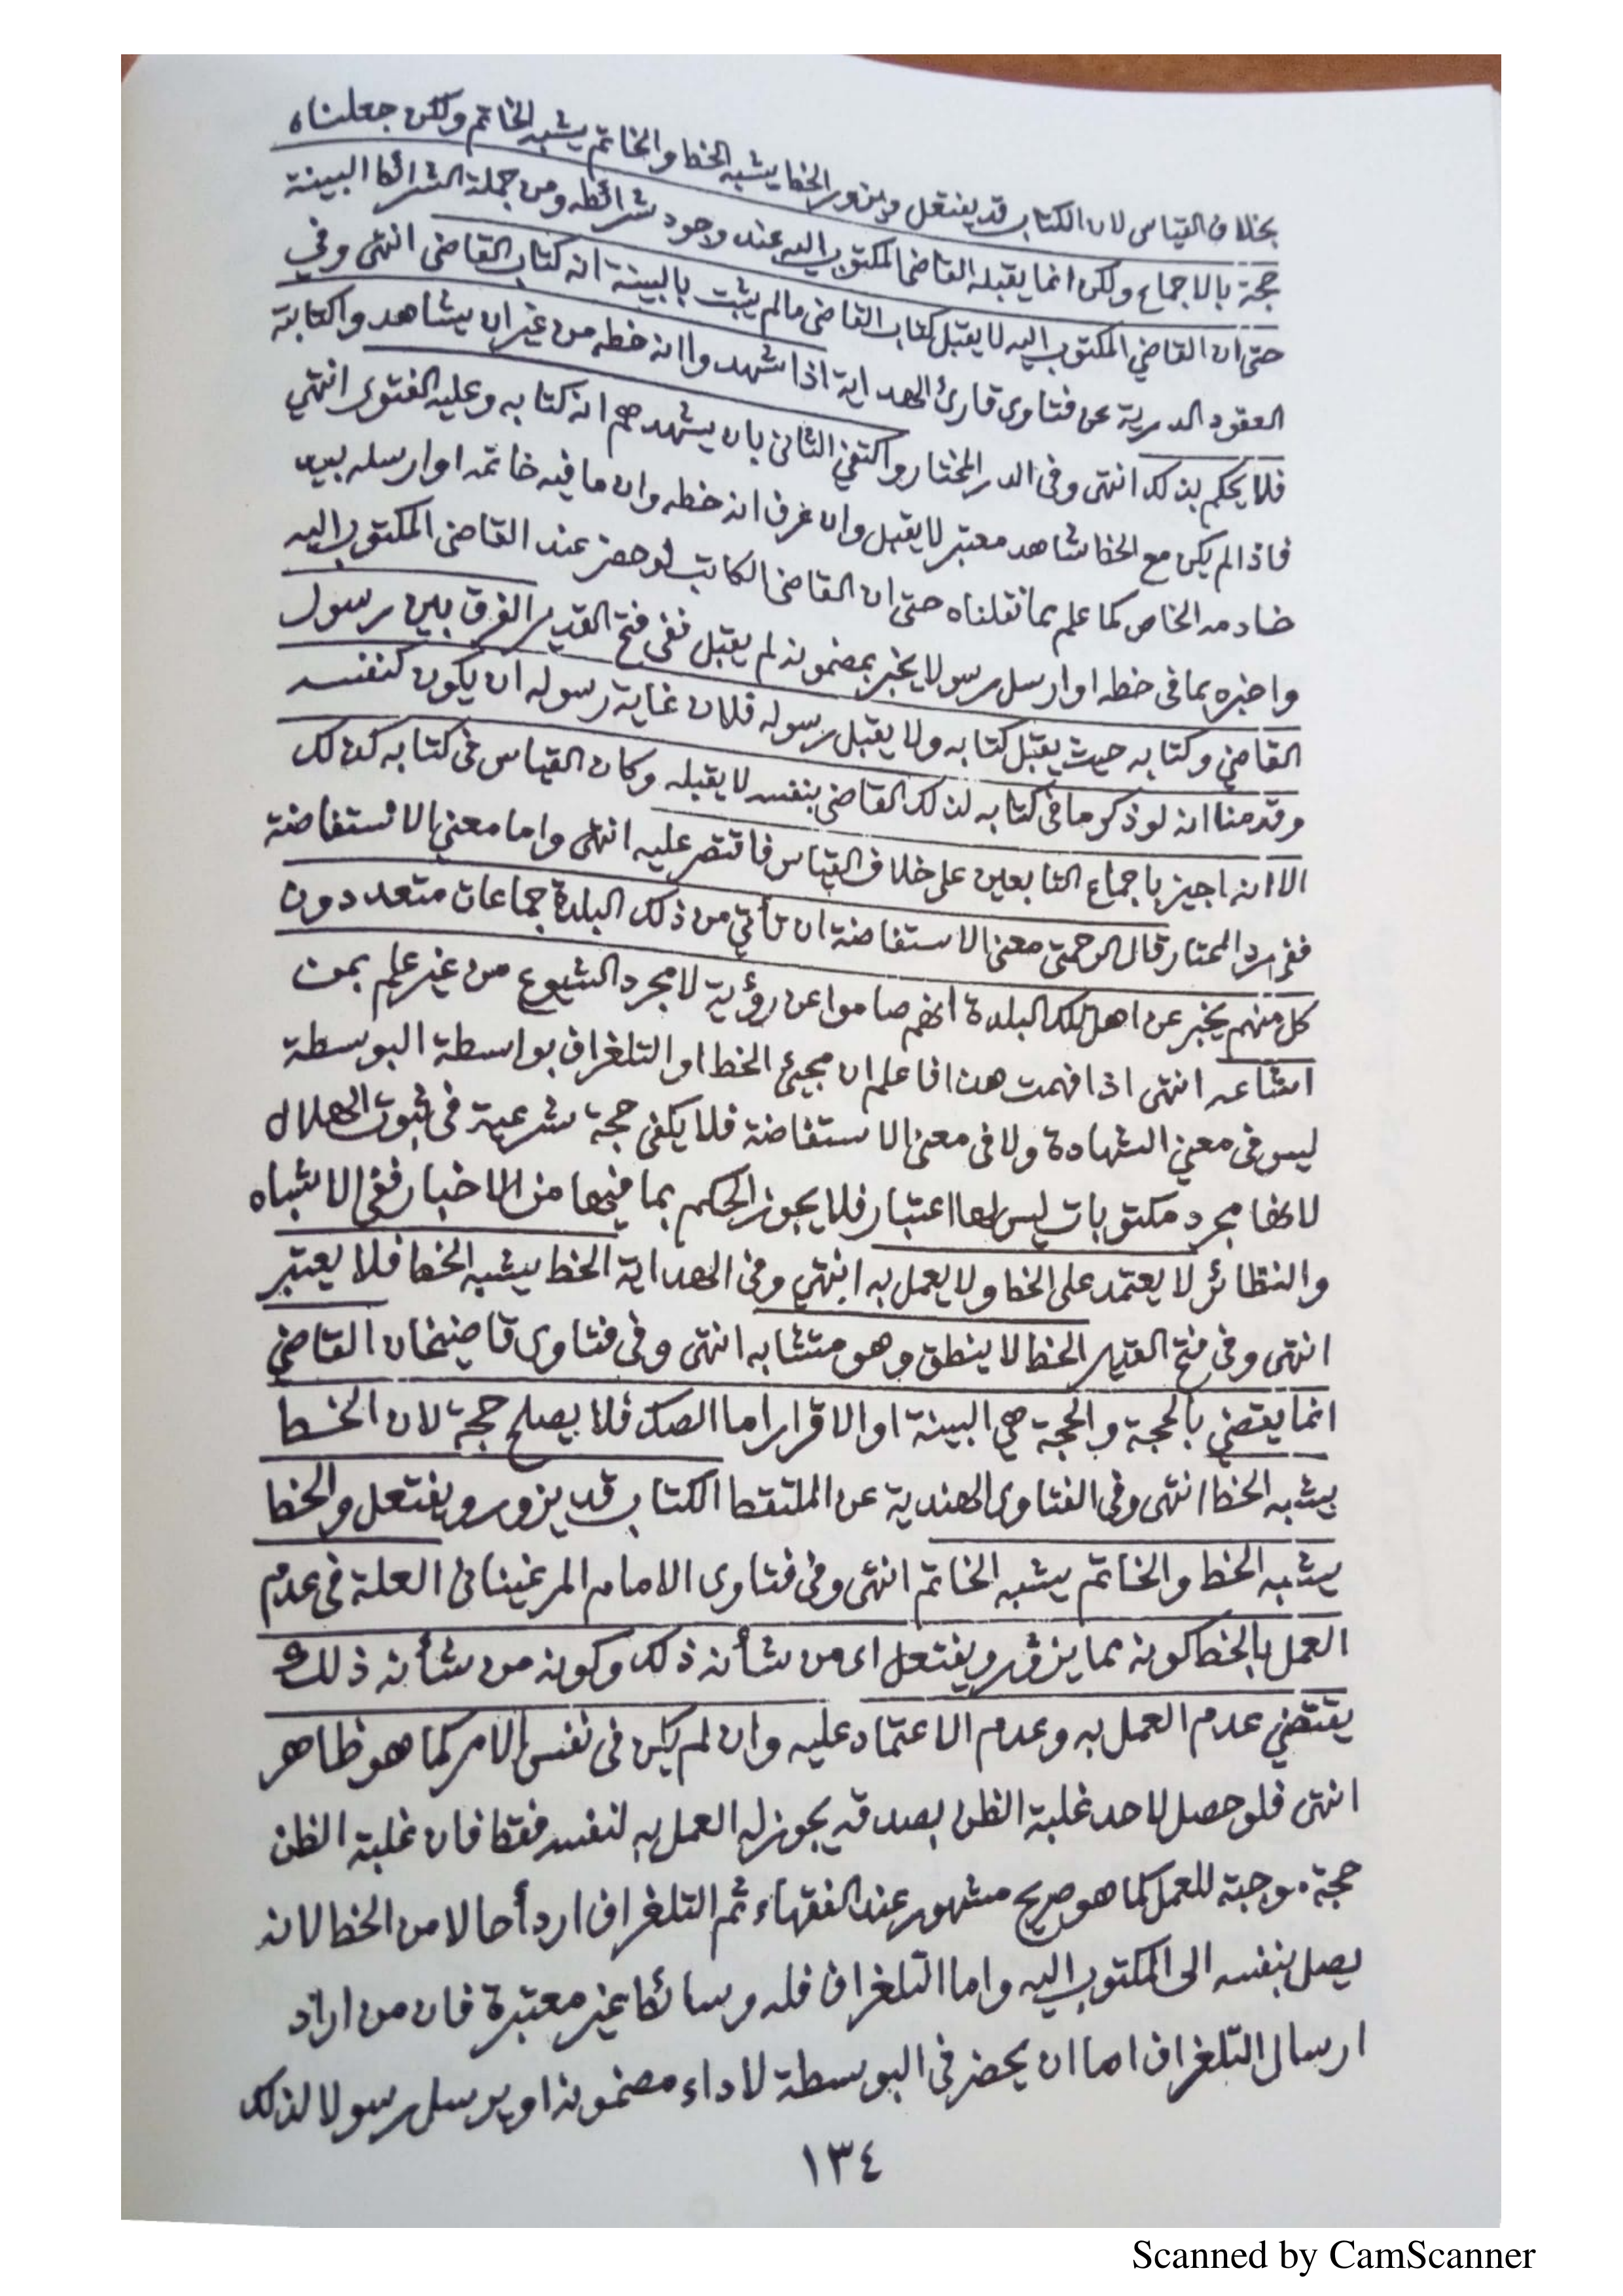 بخلاف القياس لان الكتاب قد يفتعل ويزور الخط يشبه الخط والخاتم يشبه الخاتم ولكن جعلناه
حجة بالاجماع ولكن انما يقبله القاضى المكتوب اليه عند وجود شرائطه ومن جملة الشرائط البينة
حتى ان القاضي المكتوب اليه لا يقبل كتاب القاضى مالم يثبت بالبينة انه كتاب القاضى انتهى وفي
العقود الدرية عن فتاوى قارئ الهداية اذا شهدوا انه خطه من غير ان يشاهدوا كتابته
فلا يحكم بذلك انتهى وفى الدر المختار واكتفى الثانى بان يشهدهم انه كتابه وعليه الفتوى انتهي
فاذا لم يكن مع الخط شاهد معتبر لا يقبل وان عرف انه خطه وان ما فيه خاتمه او ارسله بيد
خادمه الخاص كما علم بما نقلناه حتى ان القاضى الكاتب لو حضر عند القاضى المكتوب اليه
واخبره بما فى خطه او ارسل رسولا يخبر بمضمونه لم يقبل ففى فتح القدير الفرق بين رسول
القاضي وكتابه حيث يقبل كتابه ولا يقبل رسوله فلان غاية رسوله ان يكون كنفسه
وقدمنا انه لو ذكر ما فى كتابه لذلك القاضى بنفسه لا يقبله وكان القياس فى كتابه كذلك
الا انه اجيز باجماع التابعين على خلاف القياس فاقتصر عليه انتهى واما معنى الاستفاضة
ففى رد المحتار قال الرحمتى معنى الاستفاضة ان تأتي من ذلك البلدة جماعات متعددون
كل منهم يخبر عن اهل تلك البلدة انهم صاموا عن رؤية لا مجرد الشيوع من غير علم بمن
اشاعه انتهى اذا فهمت هذا فاعلم ان مجيئ الخط او التلغراف بواسطة البوسطة
ليس فى معنى الشهادة ولا فى معنى الاستفاضة فلا يكفى حجة شرعية فى ثبوت الهلال
لانها مجرد مكتوبات ليس لها اعتبار فلا يجوز الحكم بما فيها من الاخبار ففى الاشباه
والنظائر لا يعتمد على الخط ولا يعمل به انتهي وفى الهداية الخط يشبه الخط فلا يعتبر
انتهى وفى فتح القدير الخط لا ينطق وهو متشابه انتهى وفى فتاوى قاضيخان القاضي
انما يقضي بالحجة والحجة هي البينة او الاقرار اما الصك فلا يصلح حجة لان الخط
يشبه الخط انتهى وفى الفتاوى الهندية عن الملتقط الكتاب قد يزور ويفتعل والخط
يشبه الخط والخاتم يشبه الخاتم انتهى وفى فتاوى الامام المرغينانى العلة فى عدم
العمل بالخط كونه مما يزور ويفتعل اى من شأنه ذلك وكونه من شأنه ذلك
يقتضي عدم العمل به وعدم الاعتماد عليه وان لم يكن فى نفس الامر كما هو ظاهر
انتهى فلو حصل لاحد غلبة الظن بصدقه يجوز له العمل به لنفسه فقط فان غلبة الظن
حجة موجبة للعمل كما هو صريح مشهور عند الفقهاء ثم التلغراف اردأ حالا من الخط لانه
يصل بنفسه الى المكتوب اليه واما التلغراف فله وسائط غير معتبرة فان من اراد
ارسال التلغراف اما ان يحضر فى البوسطة لاداء مضمونه او يرسل رسولا لذلك
١٣٤
Scanned by CamScanner